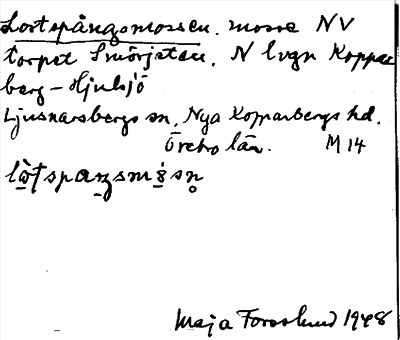 Lortspångsmossen. mosse NV
torpet Smörjeten, N lvgn Koppar
berg - Hjulsjö
Ljusnarsbergs sn, Nya Kopparbergs hd.
Örebro län. M 14
Maja Forslund 1948